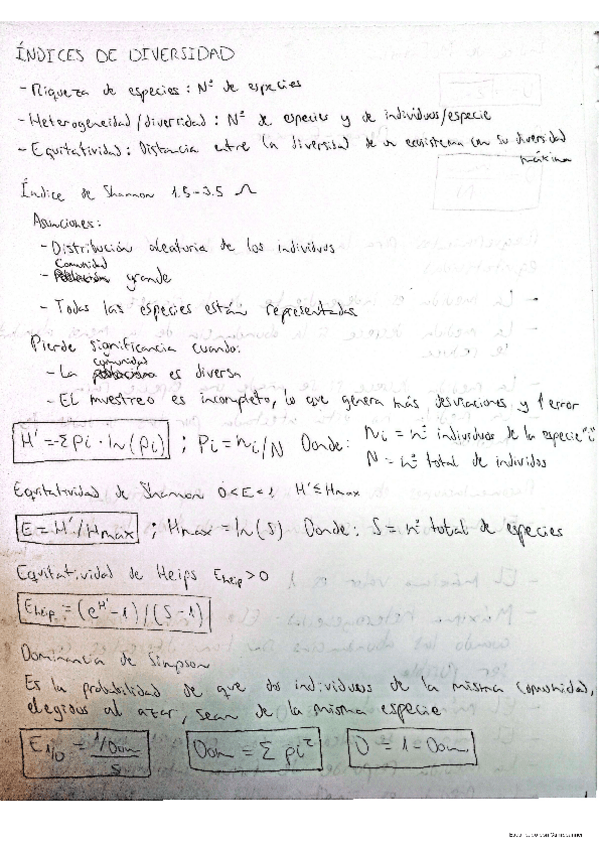 ÍNDICES DE DIVERSIDAD
- Riqueza de especies: Nº de especies
- Heterogeneidad/diversidad: Nº de especies y de individuos/especie
- Equitatividad: Distancia entre la diversidad de un ecosistema con su diversidad
máxima
Índice de Shannon 1.5-3.5
Asunciones:
- Distribución aleatoria de los individuos
Comunidad
- Población grande
- Todas las especies están representadas
Pierde significancia cuando:
comunidad
- La población es diversa
- El muestreo es incompleto, lo que genera más desviaciones y ↑error
H' = -Σpi · ln(pi) ; Pi = ni/N Donde: ni = nº individuos de la especie "i"
N = nº total de individos
Equitatividad de Shannon 0<E<1 H'≤Hmax
E = H'/Hmax ; Hmax = ln(S) Donde: S = nº total de especies
Equitatividad de Heips Eheip>0
Eheip = (e^H' - 1)/(S - 1)
Dominancia de Simpson
Es la probabilidad de que dos individuos de la misma comunidad,
elegidos al azar, sean de la misma especie
E1/D = 1/Dom / S Dom = Σ pi² D = 1 - Dom